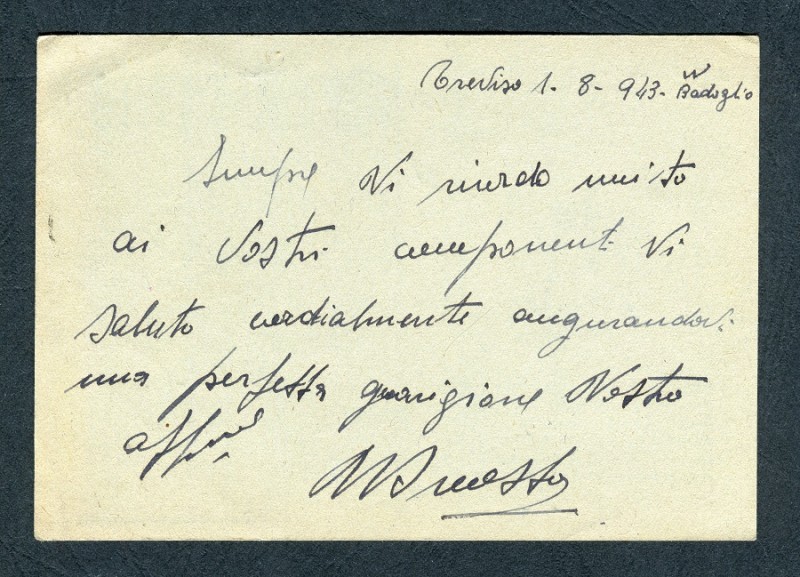 Treviso 1-8-943- W Badoglio
Sempre Vi ricordo unito
ai Vostri componenti Vi
saluto cordialmente augurandovi
una perfetta guarigione Vostro
aff.mo